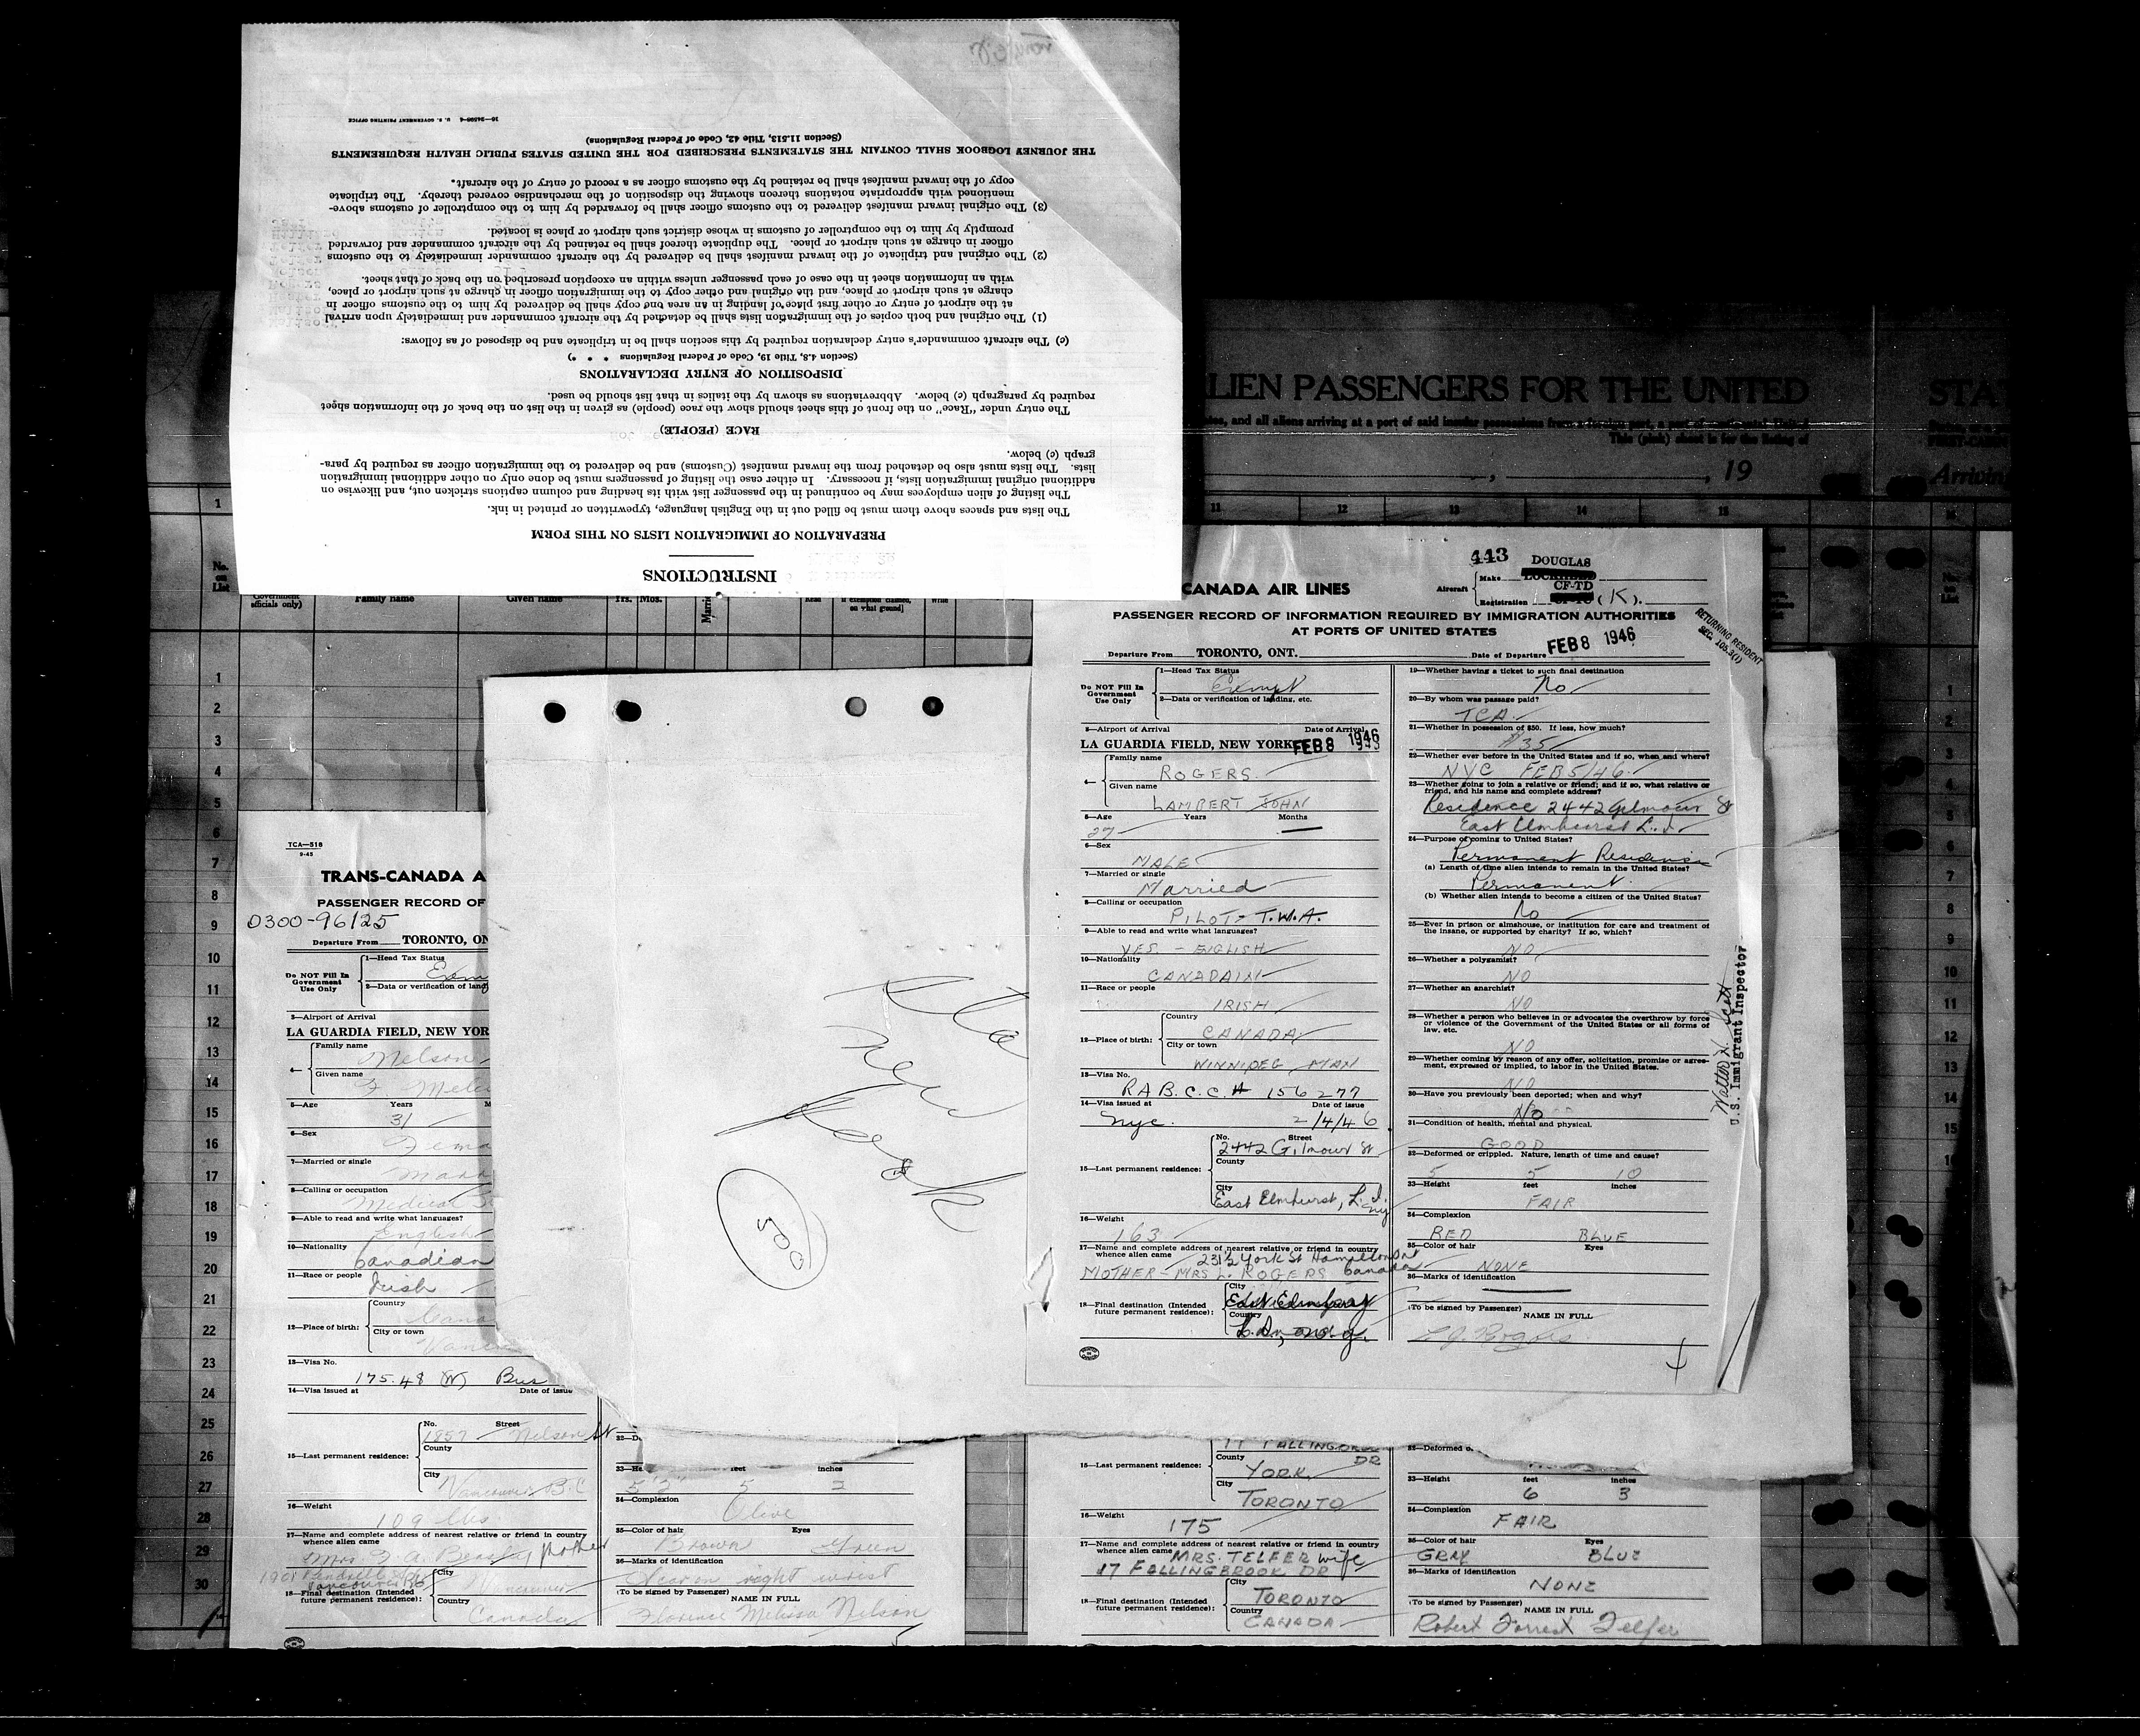 INSTRUCTIONS
PREPARATION OF IMMIGRATION LISTS ON THIS FORM
The lists and spaces above them must be filled out in the English language, typewritten or printed in ink.
The listing of alien employees may be continued in the passenger list with its heading and column captions stricken out, and likewise on
additional original immigration lists, if necessary. In either case the listing of passengers must be done only on other additional immigration
lists. The lists must also be detached from the inward manifest (Customs) and be delivered to the immigration officer as required by para-
graph (c) below.
RACE (PEOPLE)
The entry under "Race" on the front of this sheet should show the race (people) as given in the list on the back of the information sheet
required by paragraph (c) below. Abbreviations as shown by the italics in that list should be used.
DISPOSITION OF ENTRY DECLARATIONS
(Section 4.8, Title 19, Code of Federal Regulations * * *)
(c) The aircraft commander's entry declaration required by this section shall be in triplicate and be disposed of as follows:
(1) The original and both copies of the immigration lists shall be detached by the aircraft commander and immediately upon arrival
at the airport of entry or other first place of landing in an area one copy shall be delivered by him to the customs officer in
charge at such airport or place, and the original and other copy to the immigration officer in charge at such airport or place,
with an information sheet in the case of each passenger unless within an exception prescribed on the back of that sheet.
(2) The original and triplicate of the inward manifest shall be delivered by the aircraft commander immediately to the customs
officer in charge at such airport or place. The duplicate thereof shall be retained by the aircraft commander and forwarded
promptly by him to the comptroller of customs in whose district such airport or place is located.
(3) The original inward manifest delivered to the customs officer shall be forwarded by him to the comptroller of customs above-
mentioned with appropriate notations thereon showing the disposition of the merchandise covered thereby. The triplicate
copy of the inward manifest shall be retained by the customs officer as a record of entry of the aircraft.
THE JOURNEY LOGBOOK SHALL CONTAIN THE STATEMENTS PRESCRIBED FOR THE UNITED STATES PUBLIC HEALTH REQUIREMENTS
(Section 11.513, Title 42, Code of Federal Regulations)
U. S. GOVERNMENT PRINTING OFFICE
LIEN PASSENGERS FOR THE UNITED
STA
tes, and all aliens arriving at a port of said insular possessions
This (pink) sheet is for the listing of
, 19
Arrivin
11 12 13 14 15
No. on List
officials only) Family name Given name Yrs. Mos.
1
2
3
4
5
6
7
8
9
10
11
12
13
14
15
16
17
18
19
20
21
22
23
24
25
26
27
28
29
30
443
CANADA AIR LINES
Aircraft Make DOUGLAS
Registration CF-TD (K).
PASSENGER RECORD OF INFORMATION REQUIRED BY IMMIGRATION AUTHORITIES
AT PORTS OF UNITED STATES
RETURNING RESIDENT
Departure From TORONTO, ONT. Date of Departure FEB 8 1946
Do NOT Fill In Government Use Only
1—Head Tax Status Exempt
2—Data or verification of landing, etc.
3—Airport of Arrival Date of Arrival
LA GUARDIA FIELD, NEW YORK FEB 8 1946
4— Family name ROGERS
Given name LAMBERT JOHN
5—Age Years Months
27 —
6—Sex
MALE
7—Married or single
Married
8—Calling or occupation
PILOT - T.W.A.
9—Able to read and write what languages?
YES - ENGLISH
10—Nationality
CANADAIN
11—Race or people
IRISH
12—Place of birth: Country CANADA
City or town WINNIPEG MAN
13—Visa No.
RA B.C.C. # 156277
14—Visa issued at Date of issue
Nyc. 2/4/46
15—Last permanent residence: No. Street
2442 Gilmour St
County
City
East Elmhurst, L.I. Ny
16—Weight
163
17—Name and complete address of nearest relative or friend in country
whence alien came 231½ York St Hamilton Ont
MOTHER - MRS L. ROGERS Canada
18—Final destination (Intended future permanent residence): City
Country
19—Whether having a ticket to such final destination
No
20—By whom was passage paid?
TCA
21—Whether in possession of $50. If less, how much?
$35
22—Whether ever before in the United States and if so, when and where?
NYC FEB 5/46
23—Whether going to join a relative or friend; and if so, what relative or
friend, and his name and complete address?
Residence 2442 Gilmour St
East Elmhurst L.I.
24—Purpose of coming to United States?
Permanent Residence
(a) Length of time alien intends to remain in the United States?
Permanent
(b) Whether alien intends to become a citizen of the United States?
No
25—Ever in prison or almshouse, or institution for care and treatment of
the insane, or supported by charity? If so, which?
NO
26—Whether a polygamist?
NO
27—Whether an anarchist?
NO
28—Whether a person who believes in or advocates the overthrow by force
or violence of the Government of the United States or all forms of
law, etc.
NO
29—Whether coming by reason of any offer, solicitation, promise or agree-
ment, expressed or implied, to labor in the United States.
NO
30—Have you previously been deported; when and why?
No
31—Condition of health, mental and physical.
GOOD
32—Deformed or crippled. Nature, length of time and cause?
5 5 10
33—Height feet inches
FAIR
34—Complexion
RED BLUE
35—Color of hair Eyes
NONE
36—Marks of identification
(To be signed by Passenger) NAME IN FULL
L J Rogers
U.S. Immigrant Inspector
TCA—518
9-45
TRANS-CANADA A
PASSENGER RECORD OF
0300-96125
Departure From TORONTO, ON
Do NOT Fill In Government Use Only
1—Head Tax Status
2—Data or verification of land
3—Airport of Arrival
LA GUARDIA FIELD, NEW YOR
4— Family name Nelson
Given name
5—Age Years
31
6—Sex
Fema
7—Married or single
Marr
8—Calling or occupation
Medical
9—Able to read and write what languages?
English
10—Nationality
Canadian
11—Race or people
Irish
12—Place of birth: Country Cana
City or town Vanc
13—Visa No.
175.48 (W) Bus
14—Visa issued at Date of issue
15—Last permanent residence: No. Street
1857 Nelson St
County
City
Vancouver B.C
16—Weight
109 lbs
17—Name and complete address of nearest relative or friend in country
whence alien came
Mother
Vancouver BC
18—Final destination (Intended future permanent residence): City Vancouver
Country Canada
33—He feet inches
5'2" 5 2
34—Complexion
Olive
35—Color of hair Eyes
Brown Green
36—Marks of identification
Scar on right wrist
(To be signed by Passenger) NAME IN FULL
Florence Melissa Nelson
new
Book
17 FALLINGBROOK DR
15—Last permanent residence: County
YORK
City
TORONTO
16—Weight
175
17—Name and complete address of nearest relative or friend in country
whence alien came MRS. TELFER wife
17 FALLINGBROOK DR
18—Final destination (Intended future permanent residence): City TORONTO
Country CANADA
32—Deformed o
33—Height feet inches
6 3
34—Complexion
FAIR
35—Color of hair Eyes
GRAY BLUE
36—Marks of identification
NONE
(To be signed by Passenger) NAME IN FULL
Robert Forrest Telfer